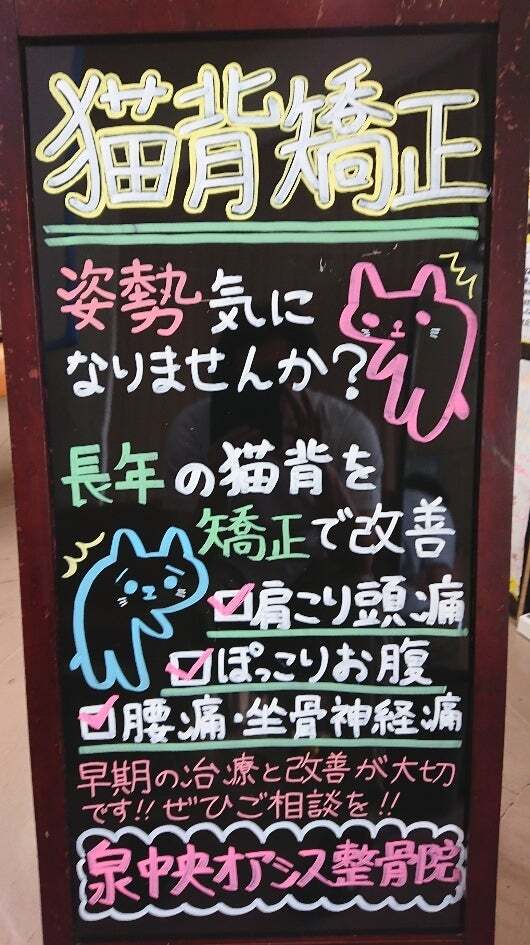 猫背矯正
姿勢気に
なりませんか?
長年の猫背を
矯正で改善
肩こり頭痛
ぽっこりお腹
腰痛・坐骨神経痛
早期の治療と改善が大切
です!!ぜひご相談を!!
泉中央オアシス整骨院